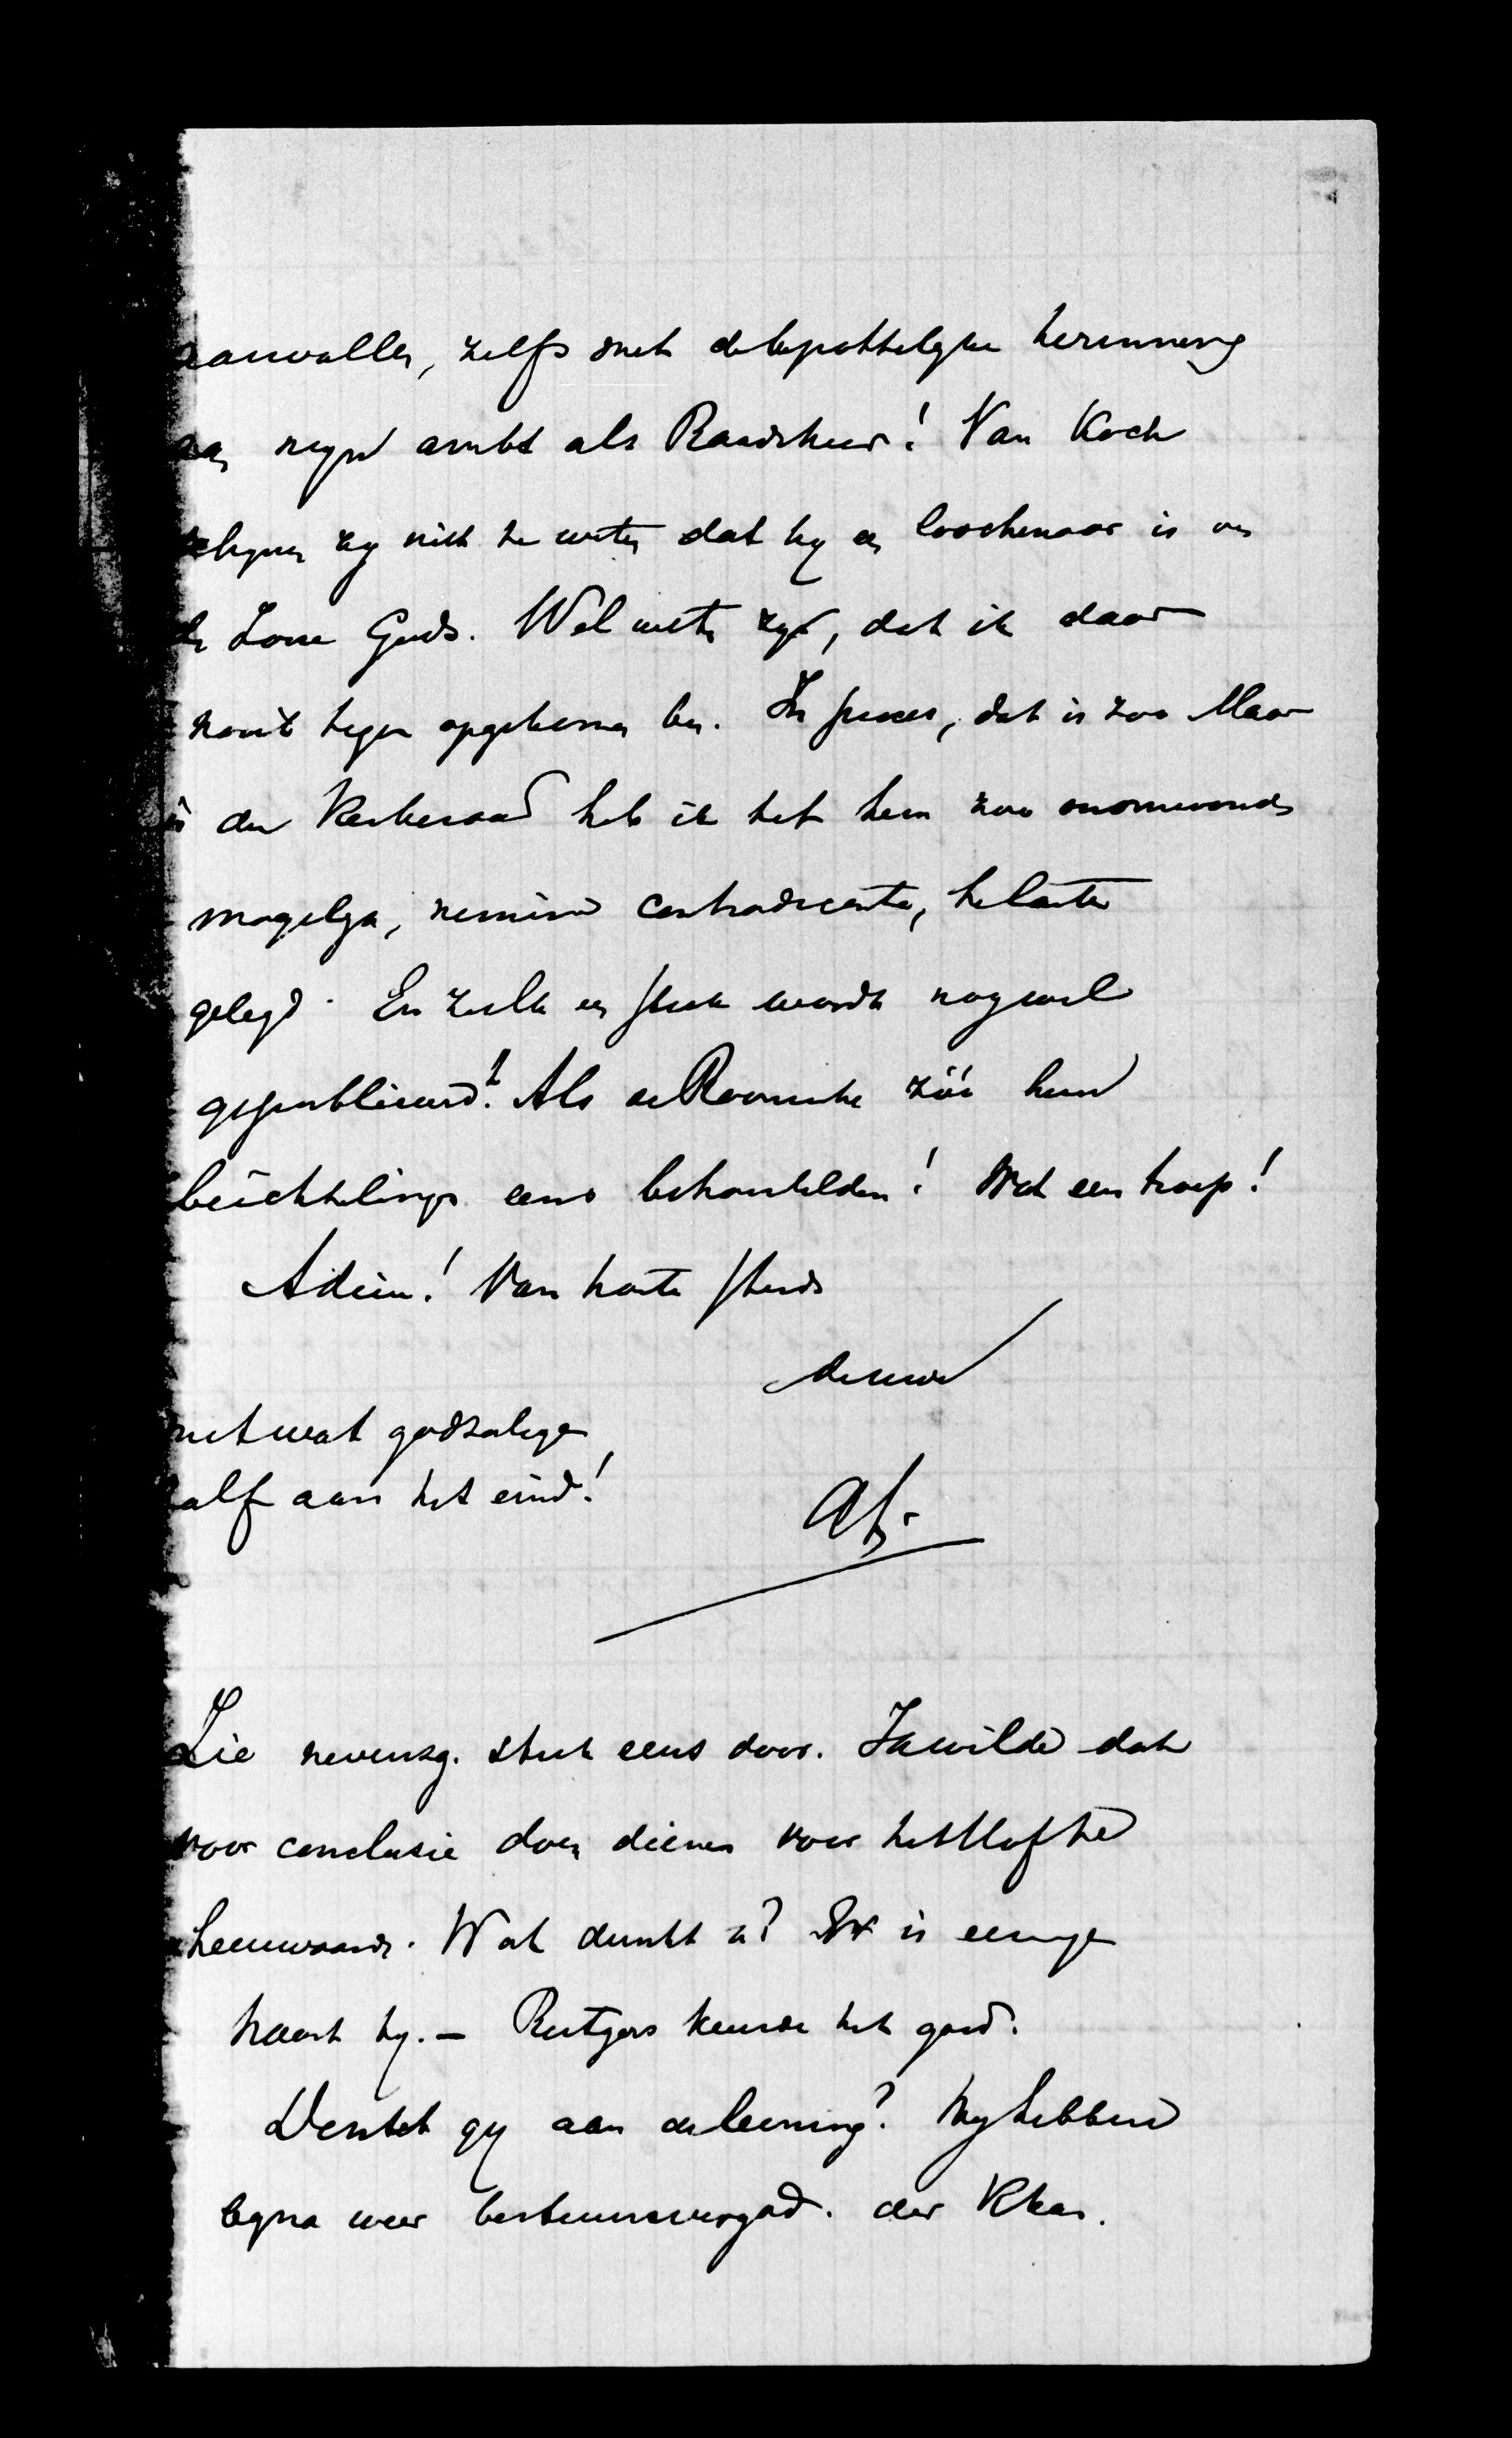 aanvallen, zelfs met de bespottelyke herinnering
aan zyn ambt als Raadsheer! Van Koch
schynen zy niet te weten dat hy een loochenaar is van
de Zone Gods. Wel weten zy, dat ik daar
nooit tegen opgekomen ben. In pers, dat is zoo Maar
in den Kerkeraad heb ik het hem zoo onomwonden
mogelyk, nemine contradicente, te laste
gelegd. En zulk een stuk wordt nog wel
gepubliceerd! Als de Roomsche zóó hun
beichtelings eens behandelden! Wat een troep!
Adieu! Van harte steeds
de uwe
met wat godzalige
zalf aan het eind!
Zie nevensg. stuk eens door. Ik wilde dat
voor conclusie doen dienen voor het Hof te
Leeuwaarden. Wat dunkt u? Er is eenige
haast by. — Rutgers keurde het goed.
Denket gy aan de leening? Wy hebben
byna weer bestuursvergad. der